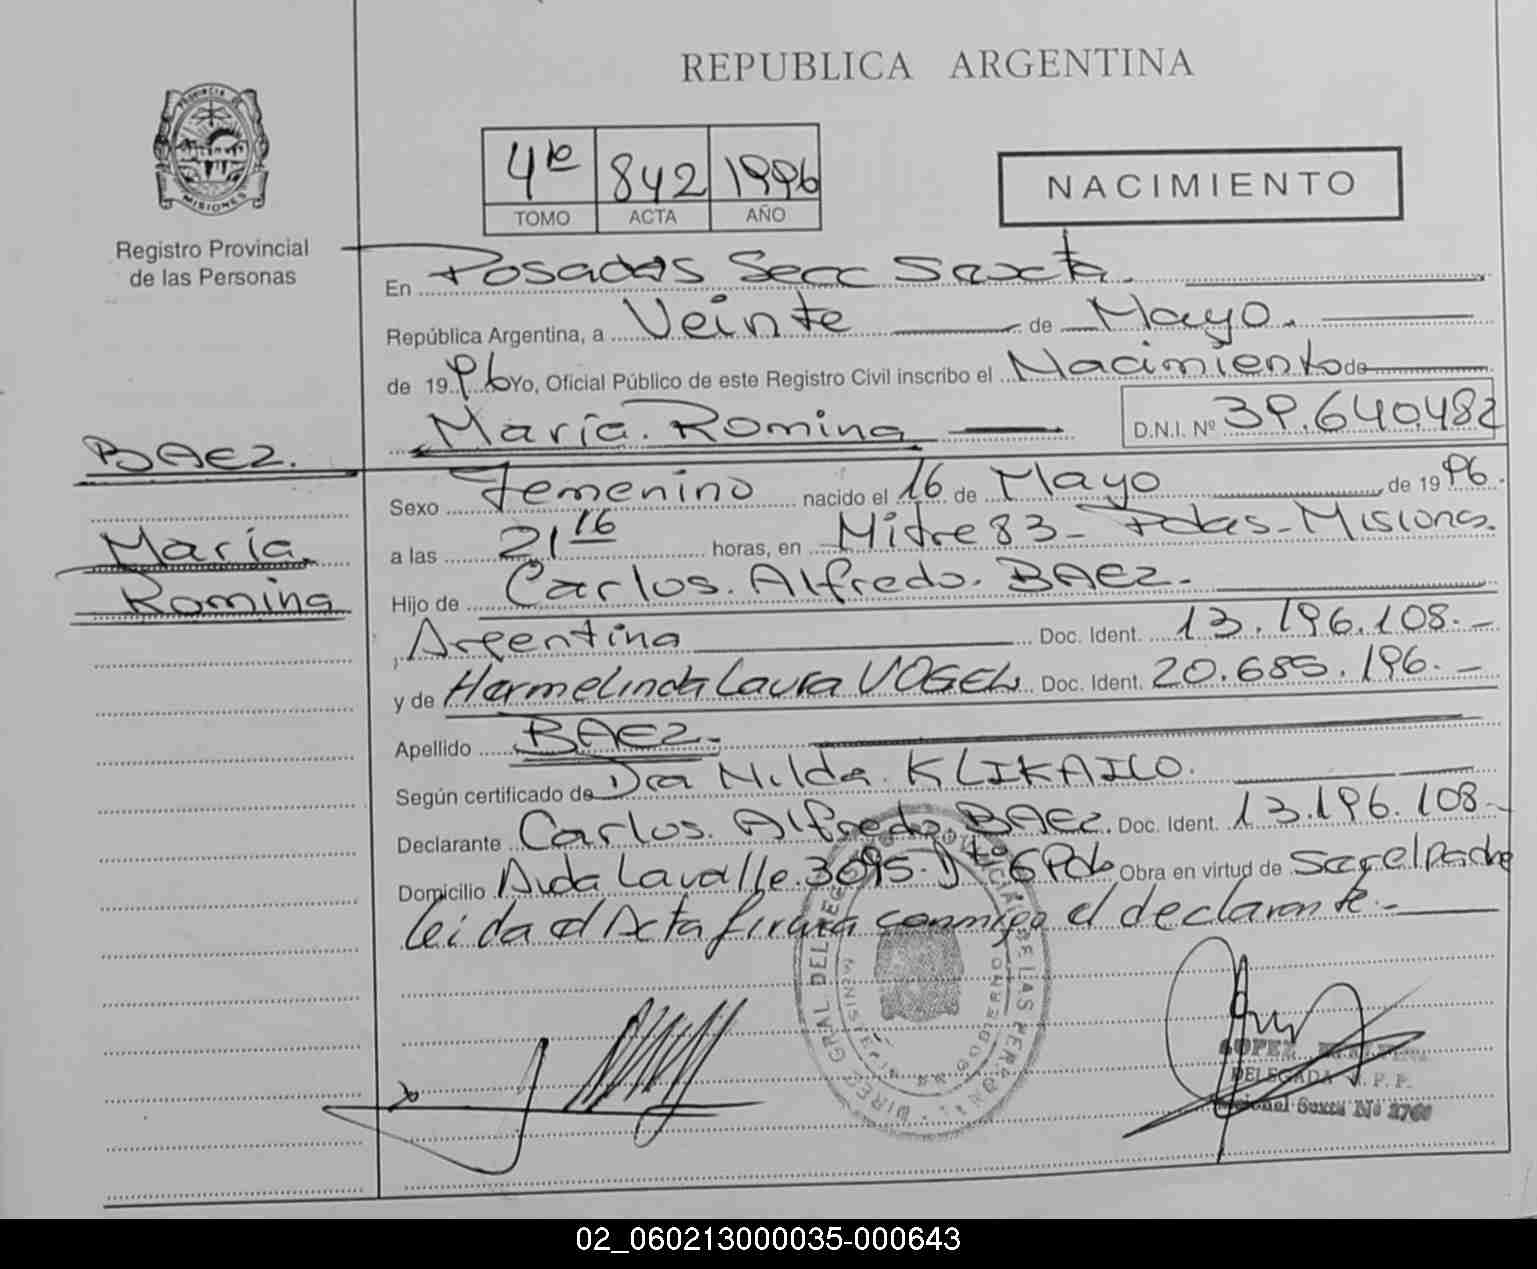 REPUBLICA ARGENTINA
PROVINCIA DE
MISIONES
Registro Provincial
de las Personas
4to 842 1996
TOMO ACTA AÑO
NACIMIENTO
En Posadas Secc Sexta.
República Argentina, a Veinte de Mayo.
de 1996 Yo, Oficial Público de este Registro Civil inscribo el Nacimiento de
María. Romina D.N.I. Nº 39.640.482
BAEZ.
María.
Romina
Sexo Femenino nacido el 16 de Mayo de 1996.
a las 21 16 horas, en Mitre 83- Pdas-Misiones.
Hijo de Carlos. Alfredo. BAEZ.
, Argentina Doc. Ident. 13.196.108.-
y de Hermelinda Laura VOGEL Doc. Ident. 20.685.196.-
Apellido BAEZ.
Según certificado de Dra Nilda. KLIKAILO.
Declarante Carlos. Alfredo. BAEZ. Doc. Ident. 13.196.108-
Domicilio Avda Lavalle 3095. Dto 6 Pdas Obra en virtud de Ser el padre
leida el Acta firma conmigo el declarante.-
DELEGADA R. P. P.
Seccional Sexta Nº 2760
02_060213000035-000643